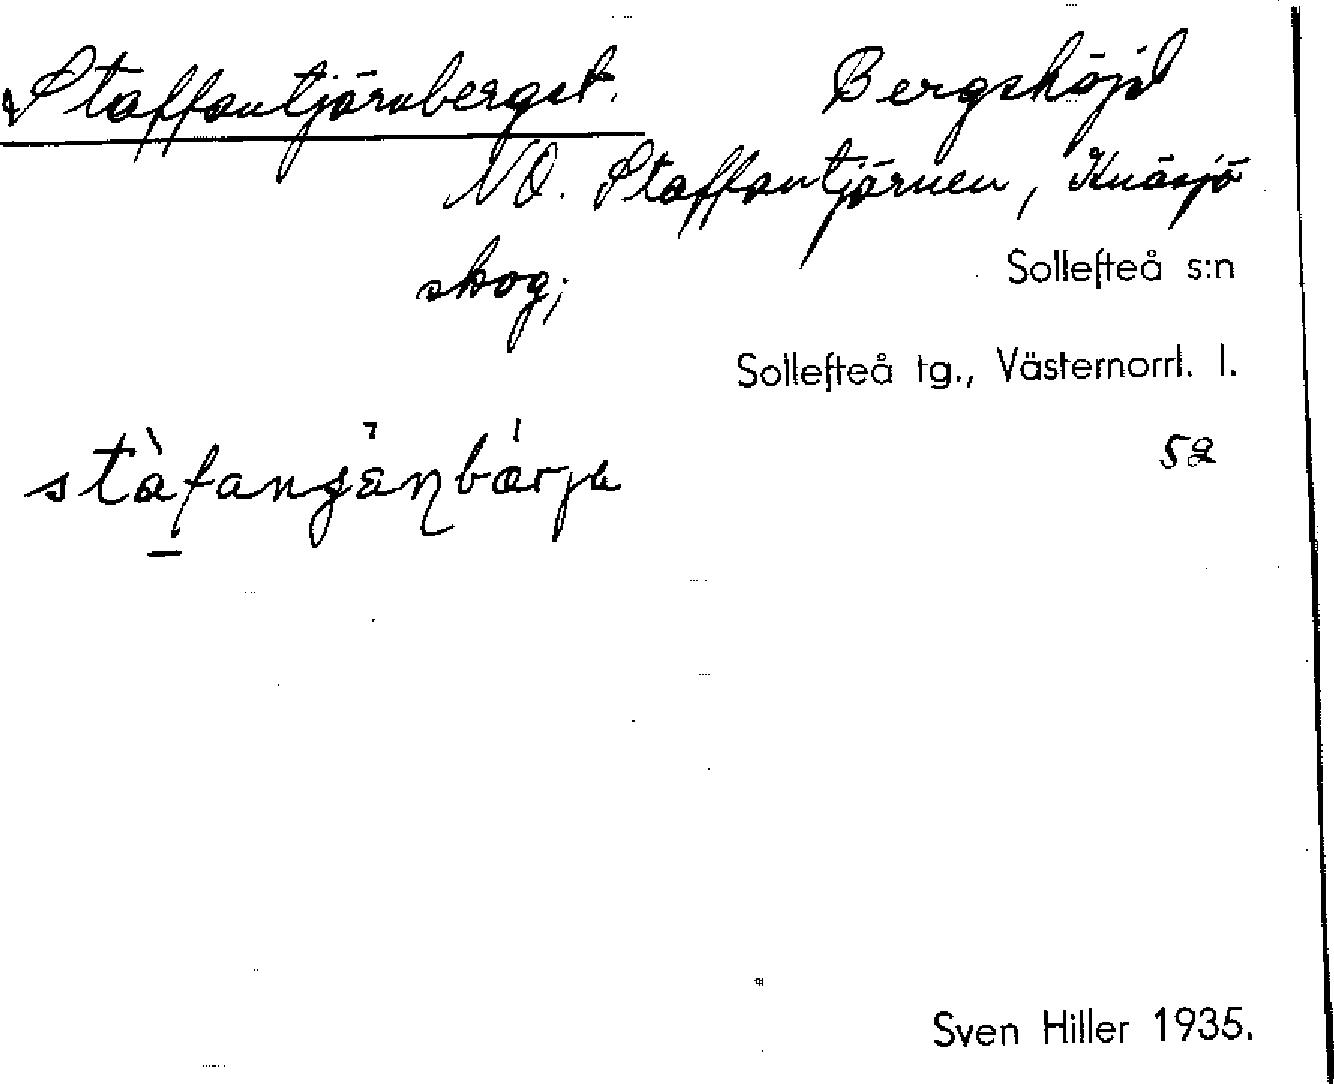 Staffantjärnberget. Bergshöjd
NO. Staffantjärnen, Knäsjö
skog;
Sollefteå s:n
Sollefteå tg., Västernorrl. l.
52
Sven Hiller 1935.